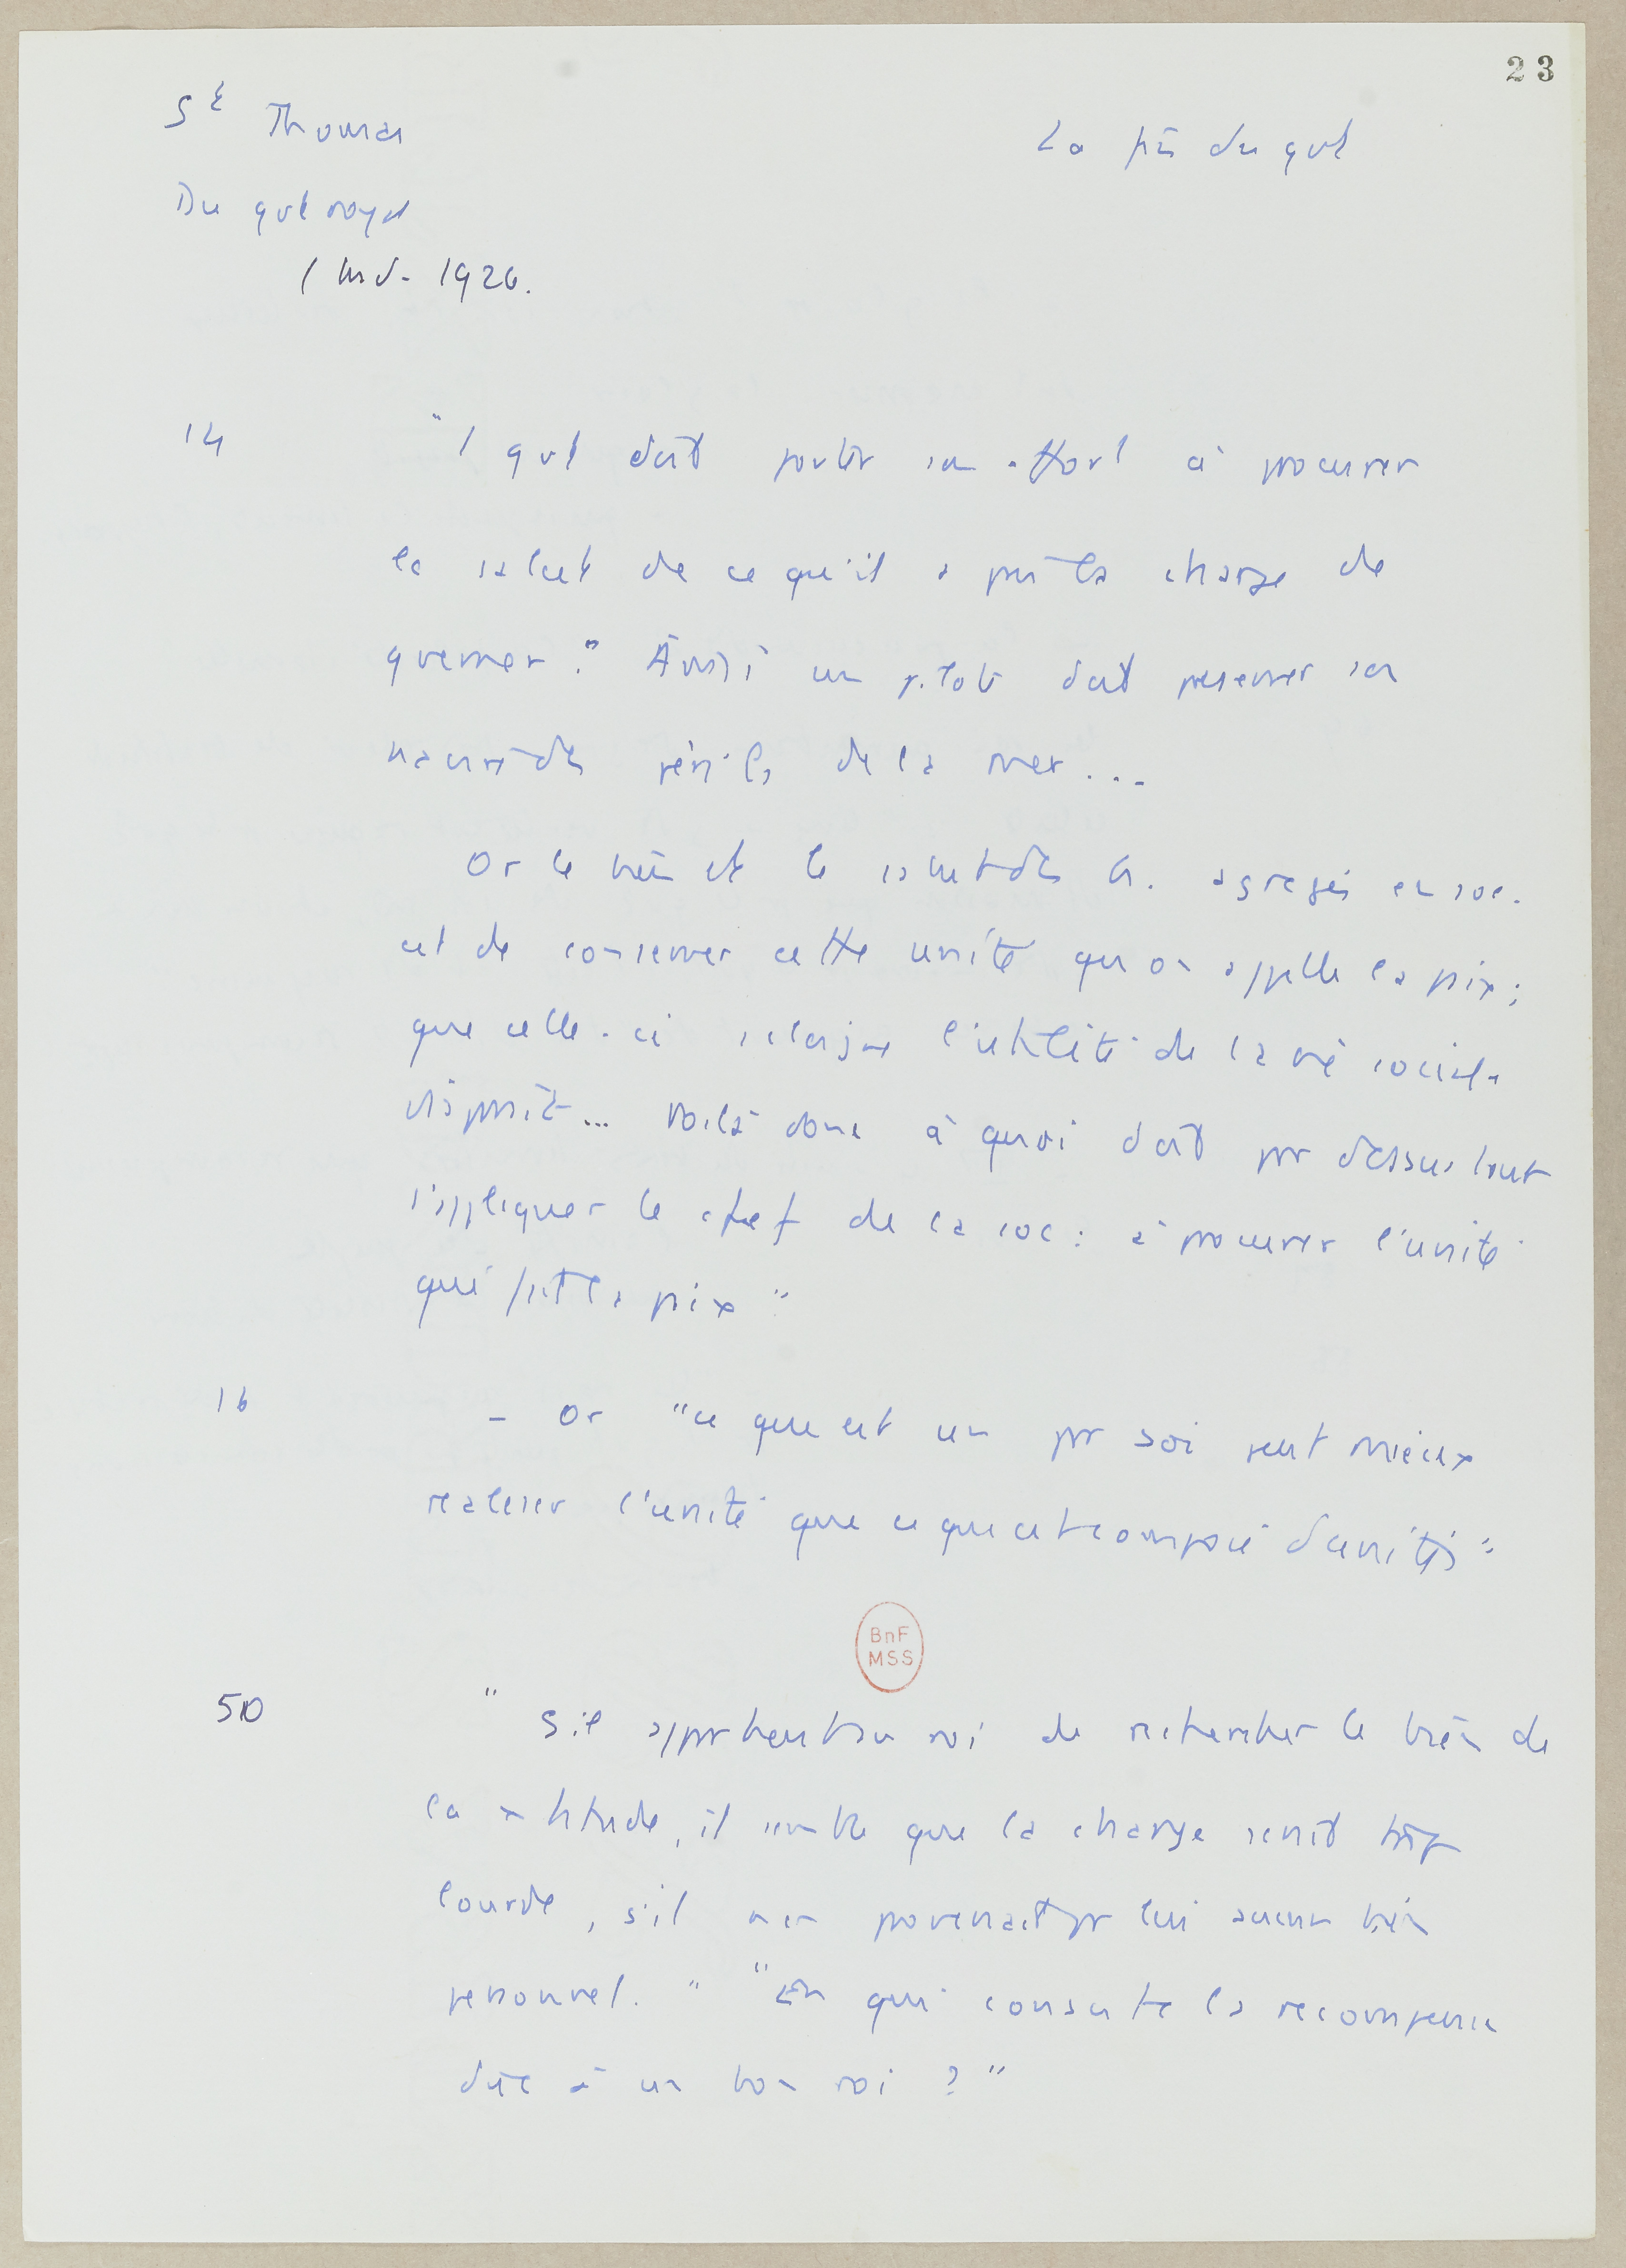 23
St Thomas
La fin du gvt
Du gvt royal
(trad. 1926.
14
"l gvt doit porter son effort à procurer
le salut de ce qu'il a pris la charge de
gverner." Ainsi un pilote doit préserver son
navire des périls de la mer...
Or le bien et le salut des h. agrégés en soc.
est de conserver cette unité qu'on appelle la paix;
que celle-ci s'éloigne l'utilité de la vie sociale
disparait... Voilà donc à quoi doit par dessus tout
s'appliquer le chef de la soc: à procurer l'unité
qui fait la paix"
16
- Or "ce qui est un par soi peut mieux
realiser l'unité que ce qui est composé d'unités"
BnF
MSS
50
"S'il appartient au roi de rechercher le bien de
la x titude, il semble que la charge serait trop
lourde, s'il n'en provenait pr lui aucun bien
personnel." "En quoi consiste la recompense
due à un bon roi ?"